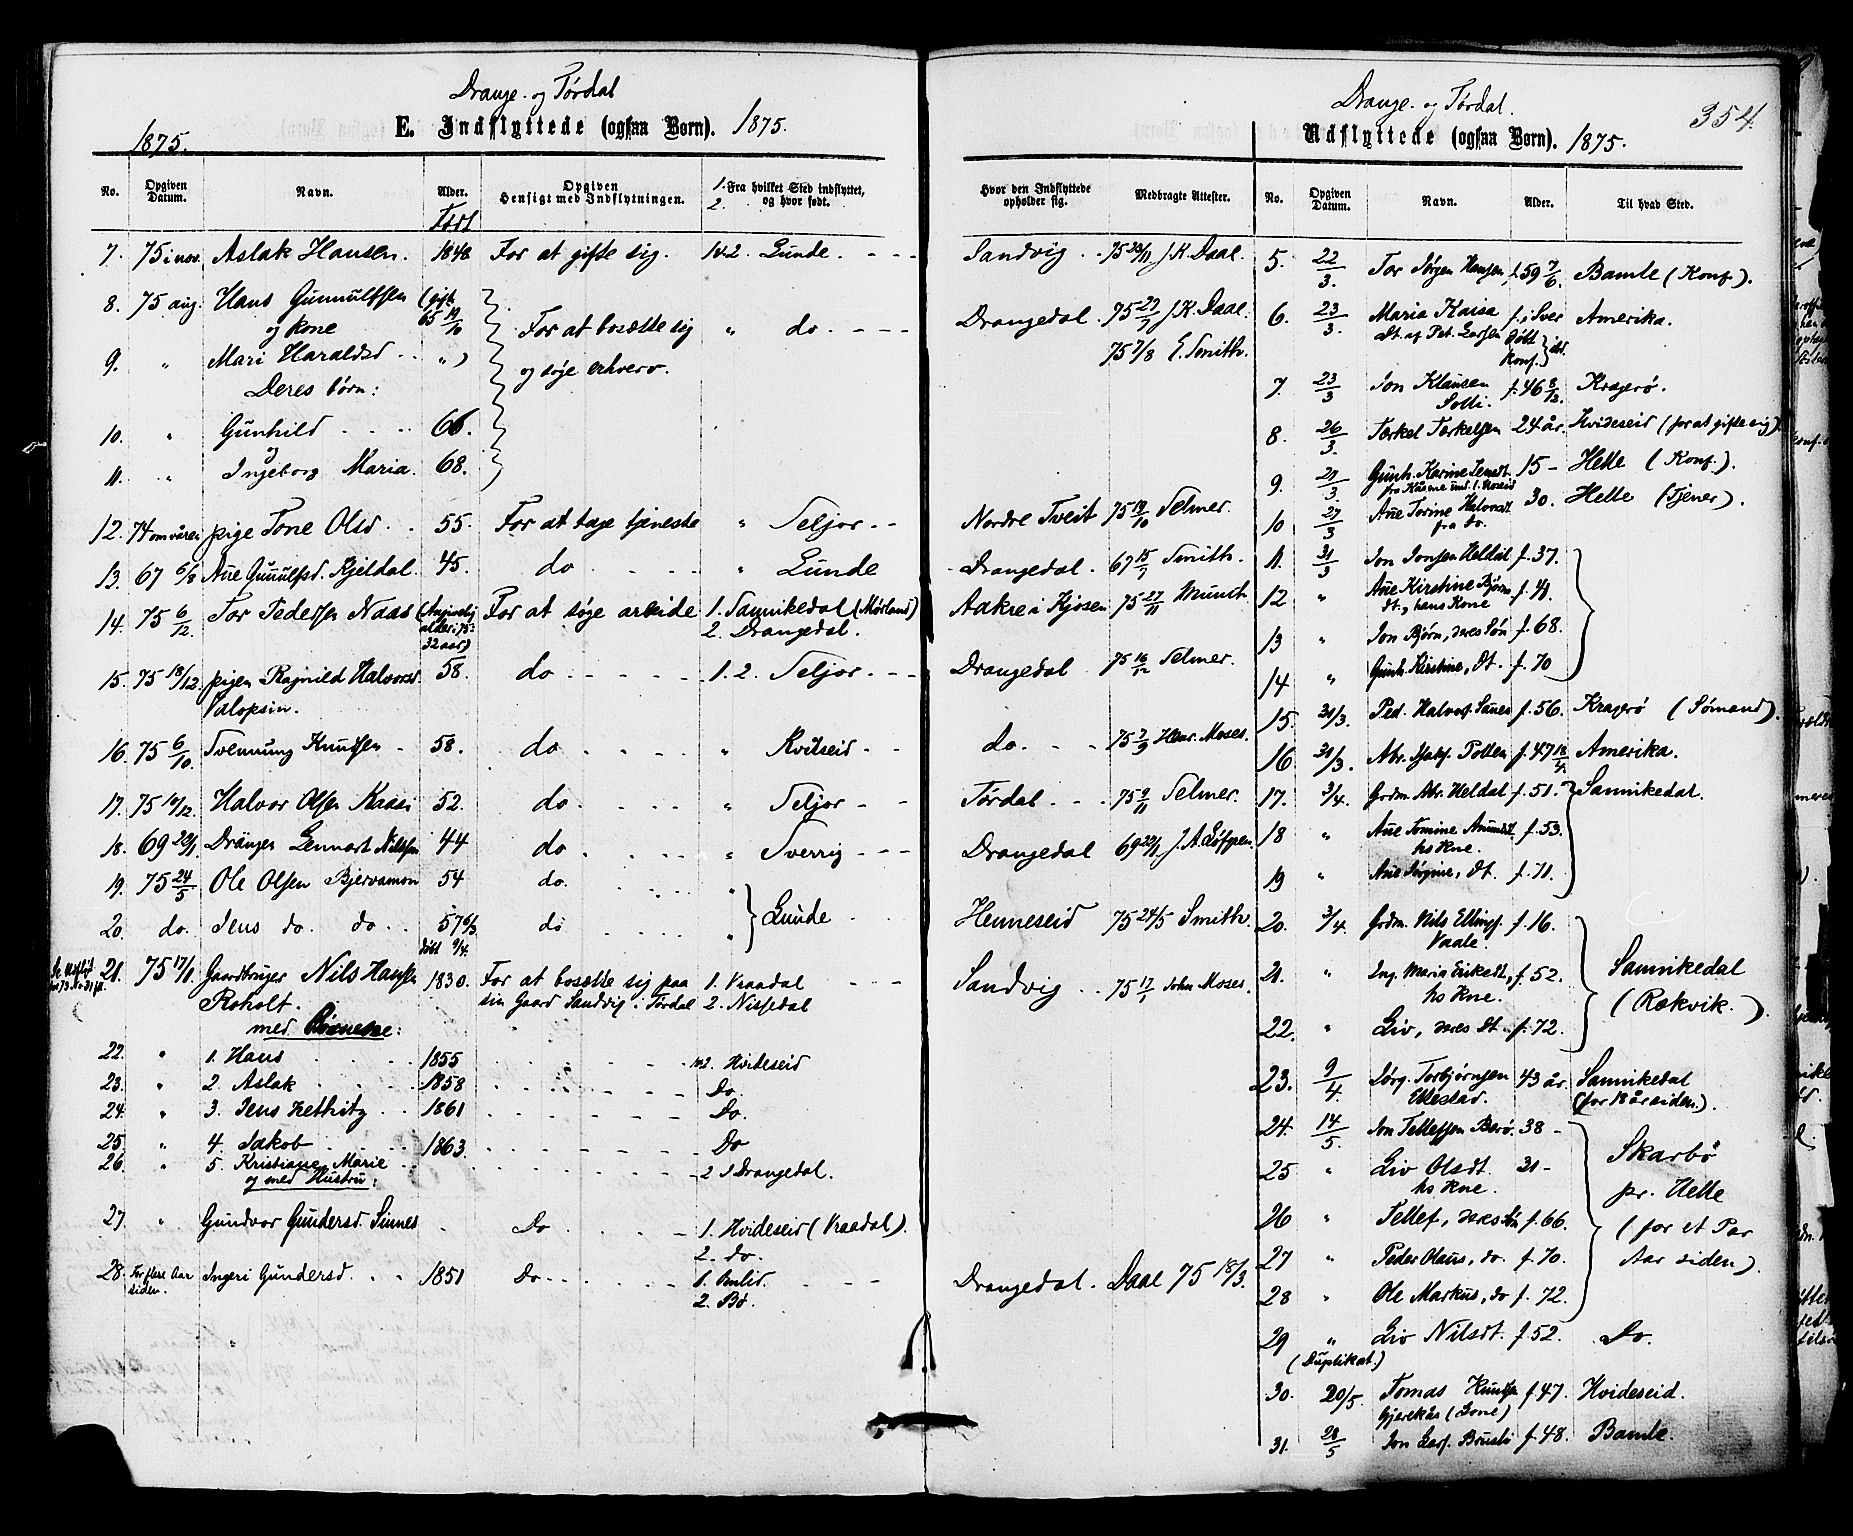 Drange. og Tørdal
1875.
E. Indflyttede (ogsaa Børn). 1875.
No. Opgiven Datum. Navn. Alder. Født Opgiven Hensigt med Indflytningen. 1. Fra hvilket Sted indflyttet, 2. og hvor født. Hvor den Indflyttede opholder sig. Medbragte Attester.
7. 75 i nov. Aslak Hansen. 1848 For at gifte sig. 1 & 2. Lunde. Sandvig 75 J.K. Daal.
8. 75 aug. Hans Gunnulfsen (gift 65 19/10 For at bosætte sig " do. Drangedal 75 27/7 J.K. Daal.
og kone
9. " Mari Haraldsd. ") og søge erhverv. 75 7/8 E. Smith.
Deres børn:
10. " Gunhild 66.
og
11. " Ingeborg Maria. 68.
12. 74 om våren pige Tone Olsd. 55. For at tage tjeneste " Seljor Nordre Tveit 75 19/10 Selmer.
13. 67 6/8 Ane Gunulfsd. Kjeldal. 45. do " Lunde Drangedal. 67 15/7 Smith.
14. 75 6/12 Tor Pedersen Naas (Angivelig alder i 75: 32 aar) For at søge arbeide 1. Sannikedal (Mørland) Aakre i Kjosen 75 27/11 Munch
2. Drangedal.
15. 75 18/12 pigen Ragnild Halvorsd. 58. do 1. 2. Seljor Drangedal 75 16/12 Selmer.
Valopsin.
16. 75 6/10 Svennung Knudsen 58. do " Kvitseid do. 75 2/9 Henr. Moses.
17. 75 10/12 Halvor Olsen Kaasi 52. do " Seljor Tørdal 75 9/11 Selmer.
18. 69 20/1 Drängen Lennart Nilsson 44 do " Sverrig Drangedal 69 20/1 J.A. Löfgren
19. 75 24/5 Ole Olsen Bjervamon 54 do. " Lunde Henneseid 75 24/5 Smith.
20. do. Jens do. do. 57 6/3 døbt 9/4. do "
21. 75 17/1 Gaardbruger Nils Hansen 1830. For at bosætte sig paa 1. Vraadal Sandvig 75 17/1 John Moses.
Roholt. sin Gaard Sandvig i Tørdal 2. Nissedal
med Børnene:
22. " 1. Hans 1855 1&2. Hvideseid
23. " 2. Aslak 1858 Do.
24. " 3. Jens Kethitz 1861 Do.
25. " 4. Jakob 1863. Do
26. " 5. Kristiane Marie 2 Drangedal.
og med Hustru:
27. " Gundvor Gundersd. Sinnes Do 1. Hvideseid (Vraadal).
2. do.
28. For flere Aar siden. Ingeri Gundersd. 1851 Do 1. Drangedal. Daal 75 18/3.
2. Bø.
Drange. og Tørdal.
354.
Udflyttede (ogsaa Børn). 1875.
No. Opgiven Datum. Navn. Alder. Til hvad Sted.
5. 22/3. Tor Jørgen Hansen f. 59 7/6 Bamle (Konf.).
6. 23/3. Maria Kaisa f. i Sver Amerika.
Dt. af Pet. Larsen døbt Konf. } ibd.
7. 23/3 Jon Klausen f. 46 8/12 Kragerø.
Solli.
8. 26/3. Tærkel Tærkelsen 24 år. Hvideseid (for at gifte sig).
9. 27/3. Gunh. Karine 15 - Helle (Konf.).
10 27/3 Ane Torine Halvorsdt. 30. Helle (Tjener).
fra do.
11. 31/3 Jon Jonsen Heldal f. 37.
12 " Ane Kirstine Bjørn f. 41.
dt., hans Kone
13 " Jon Bjørn, deres Søn f. 68.
14 " Gunh. Kirstine, Dt. f. 70
15. 31/3. Ped. Halvors. Sanes f. 56. Kragerø (Sømand).
16. 31/3. Abr. Isaks. Potten f. 47 18/4. Amerika.
17. 3/4. Grdm. Abr. Heldal f. 51. Sannikedal.
18 " Ane Tomine Amundsdt. f. 53.
hs Kne.
19 " Ane Jørgine, Dt. f. 71.
20. 3/4. Grdm. Nils Ellings. f. 16. Sannikedal
Vaale. (Rækvik.)
21. " Ing. Maria Eriksdt, f. 52.
hs Kne.
22. " Liv, deres Dt. f. 72.
23. 9/4 Jørg. Torbjørnsen 43 år. Sannikedal
Ellestad. (for 18 år siden.).
24. 14/5. Jon Tellefsen Berø. 38 - Skarbø
25 " Liv Olsdt. 31 - pr. Helle
hs Kne.
26 " Tellef, deres Søn f. 66. (for et Par
27 " Peder Olaus, do. f. 70. Aar siden).
28 " Ole Markus, do f. 72.
29 " Liv Nilsdt. f. 52. Do.
(Duplikat.)
30. 20/5. Tomas Knudsen f. 47. Hvideseid.
Gjerekås (Lone)
31. 28/5 Jon Lars. Brusli f. 48. Bamle.